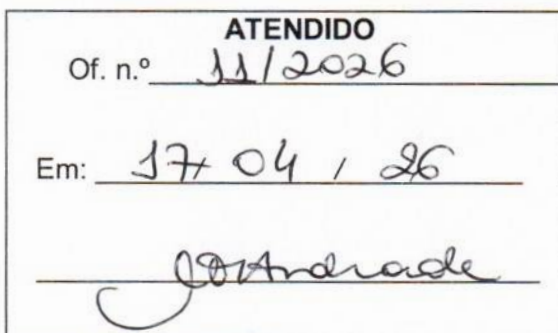 ATENDIDO
Of. n.º 11/2026
Em: 17 / 04 / 26
Andrade